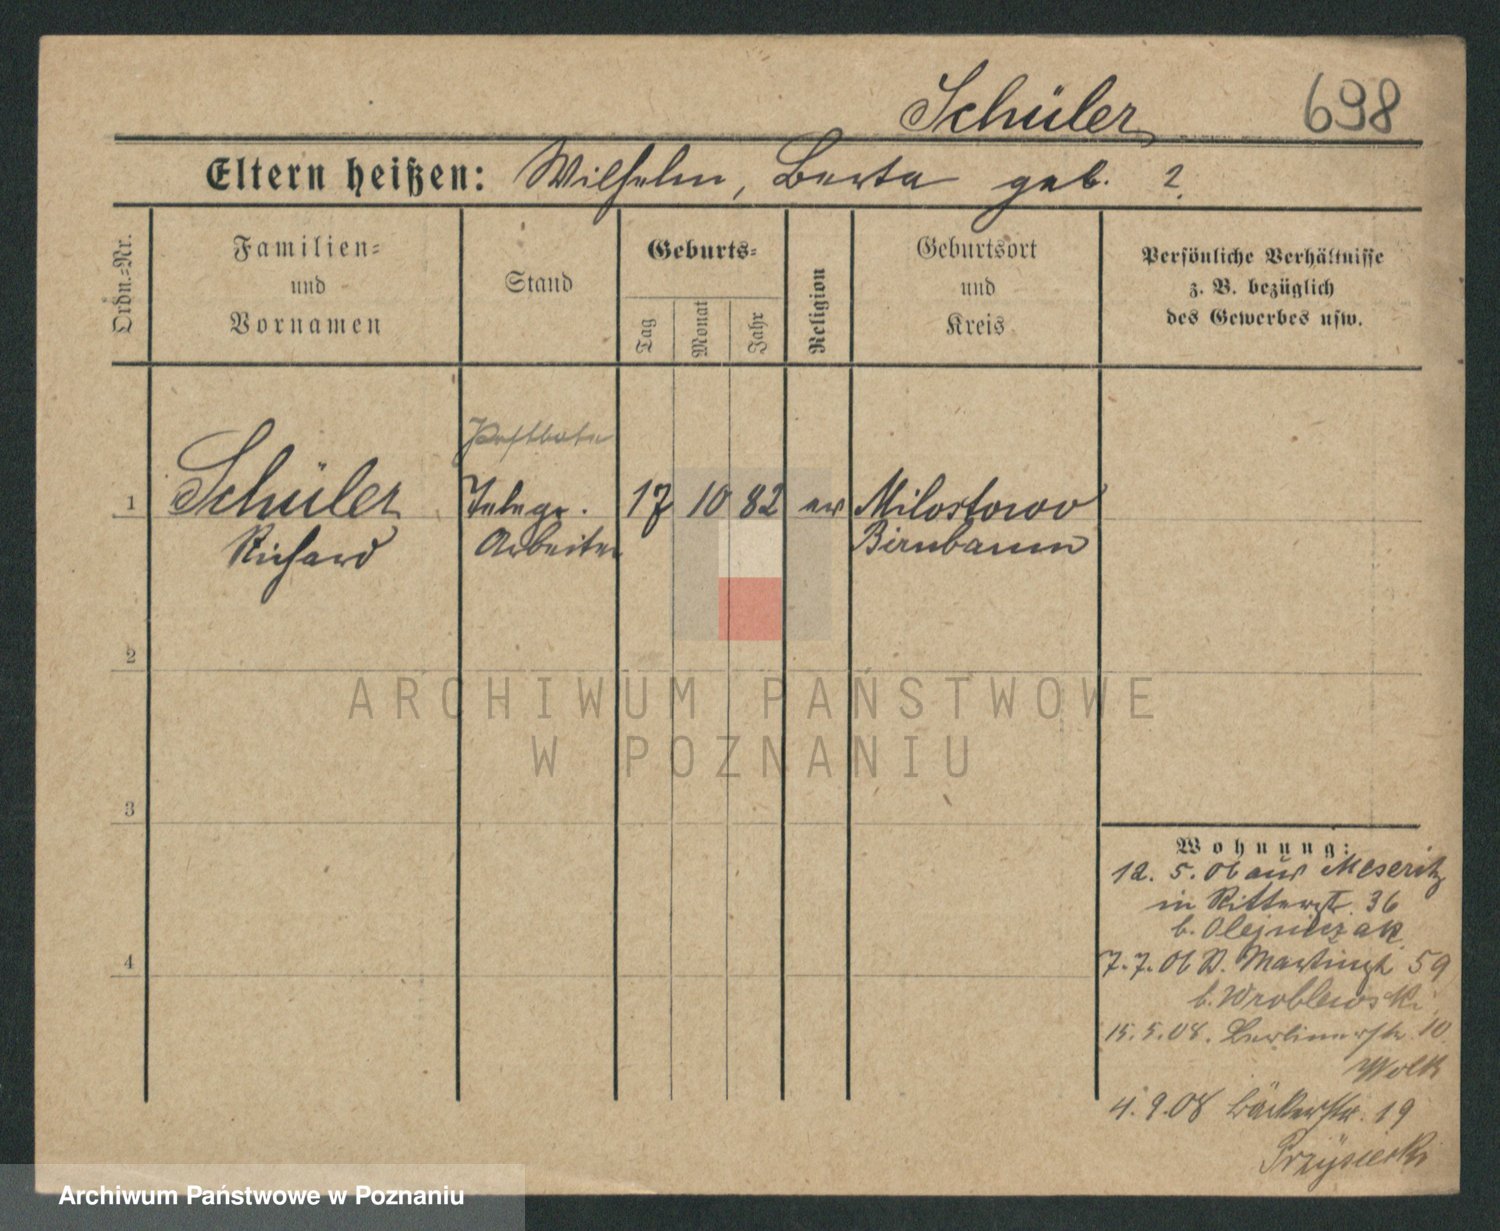 Schüler 698
Eltern heißen: Wilhelm, Berta geb. ?
Ordn.=Nr.
Familien=
und
Vornamen
Stand
Geburts=
Tag
Monat
Jahr
Religion
Geburtsort
und
Kreis
Persönliche Verhältnisse
z. B. bezüglich
des Gewerbes usw.
Postbote
1 Schüler Telegr. 17 10 82 ev Milostowo
Richard Arbeiter Birnbaum
2
3
4
ARCHIWUM PAŃSTWOWE
W POZNANIU
Wohnung:
12. 5. 06 aus Meseritz
in Ritterstr. 36
b. Olejniczak
7. 7. 06 St. Martinstr 59
b. Wroblewski
15. 5. 08. Berlinerstr 10
Wolk
4. 9. 08 Bäckerstr. 19
Przysiecki
Archiwum Państwowe w Poznaniu